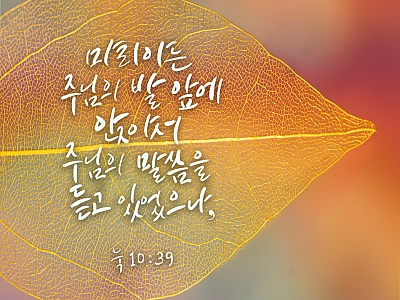 마리아는
주님의 발 앞에
앉아서
주님의 말씀을
듣고 있었으나,
눅 10:39